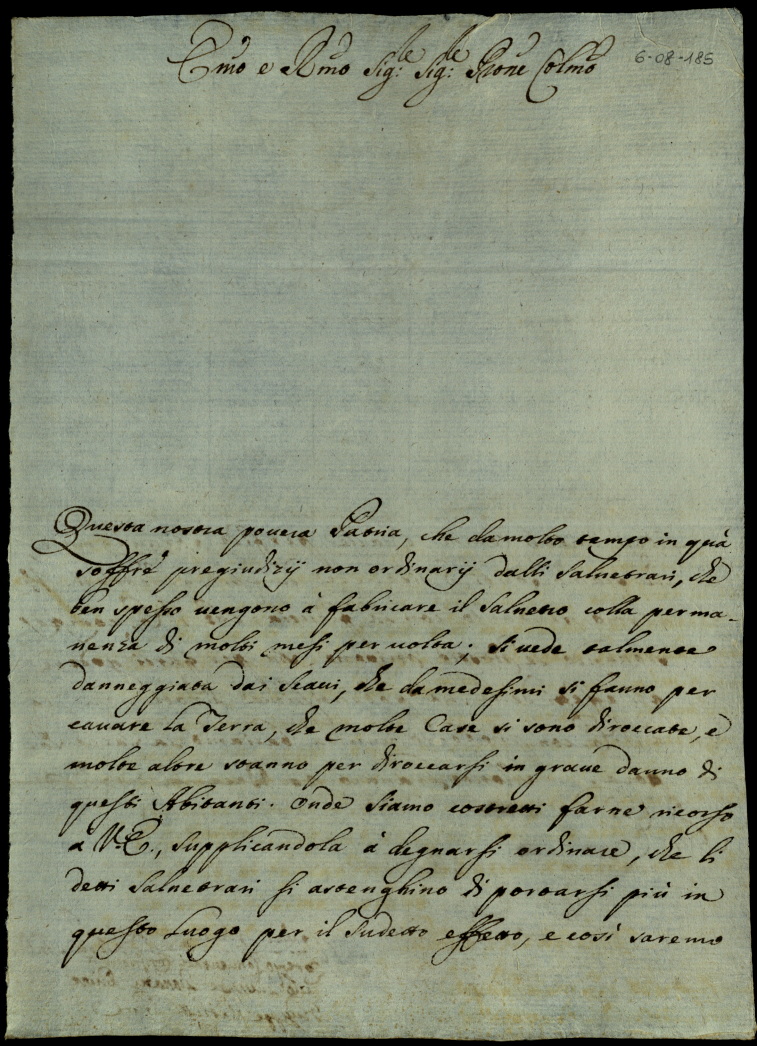 Emo e Rmo Sig:le Sig:le Prone Colmo
6-08-185
Questa nostra povera Patria, che da molto tempo in quà
soffre pregiudizij non ordinarij dalli Salnetrari, che
ben spesso vengono à fabricare il Salnetro colla perma-
nenza di molti mesi per volta; si vede talmente
danneggiata dai scavi, che da medesimi si fanno per
cavare la Terra, che molte Case si sono diroccate, e
molte altre stanno per diroccarsi in grave danno di
questi Abitanti. Onde siamo costretti farne ricorso
a V.E., supplicandola à degnarsi ordinare, che li
detti Salnetrari si astenghino di portarsi più in
questo Luogo per il sudetto effetto, e così saremo